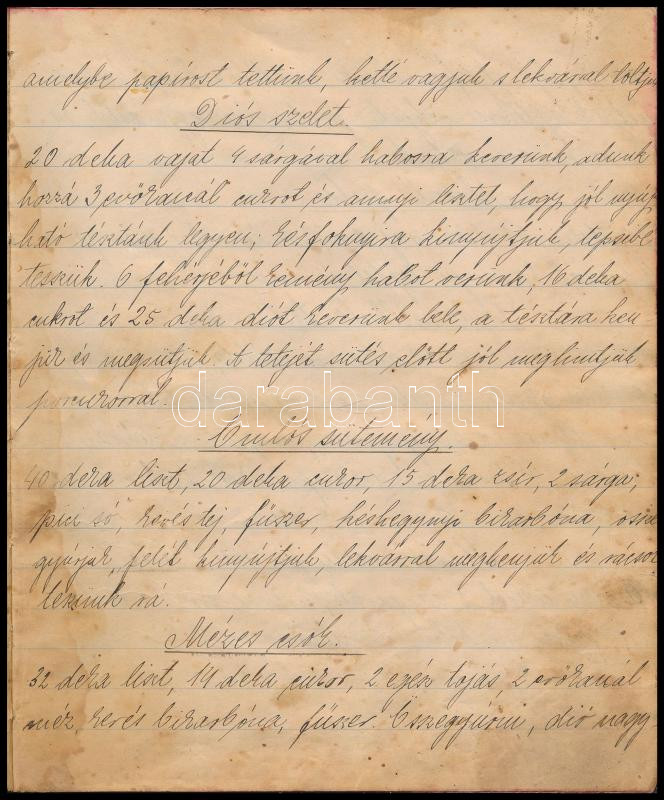 amelybe papírost tettünk, ketté vágjuk s lekvárral töltjük
Diós szelet.
20 deka vajat 4 sárgával habosra keverünk, adunk
hozzá 3 evőkanál cukrot és annyi lisztet, hogy jól nyújt
ható tésztánk legyen; késfoknyira kinyújtjuk, tepsibe
tesszük. 6 fehérjéből kemény habot verünk, 16 deka
cukrot és 25 deka diót keverünk bele, a tésztára ken
jük és megsütjük. A tetejét sütés előtt jól meghintjük
porcukorral.
darabanth
Omlós sütemény.
40 deka liszt, 20 deka cukor, 15 deka zsír, 2 sárga,
pici só, kevés tej, fűszer, késhegynyi bikarbóna, össze
gyúrjuk, felét kinyújtjuk, lekvárral megkenjük és rácsot
teszünk rá.
Mézes csók.
32 deka liszt, 14 deka cukor, 2 egész tojás, 2 evőkanál
méz, kevés bikarbóna, fűszer. Összegyúrni, dió nagy